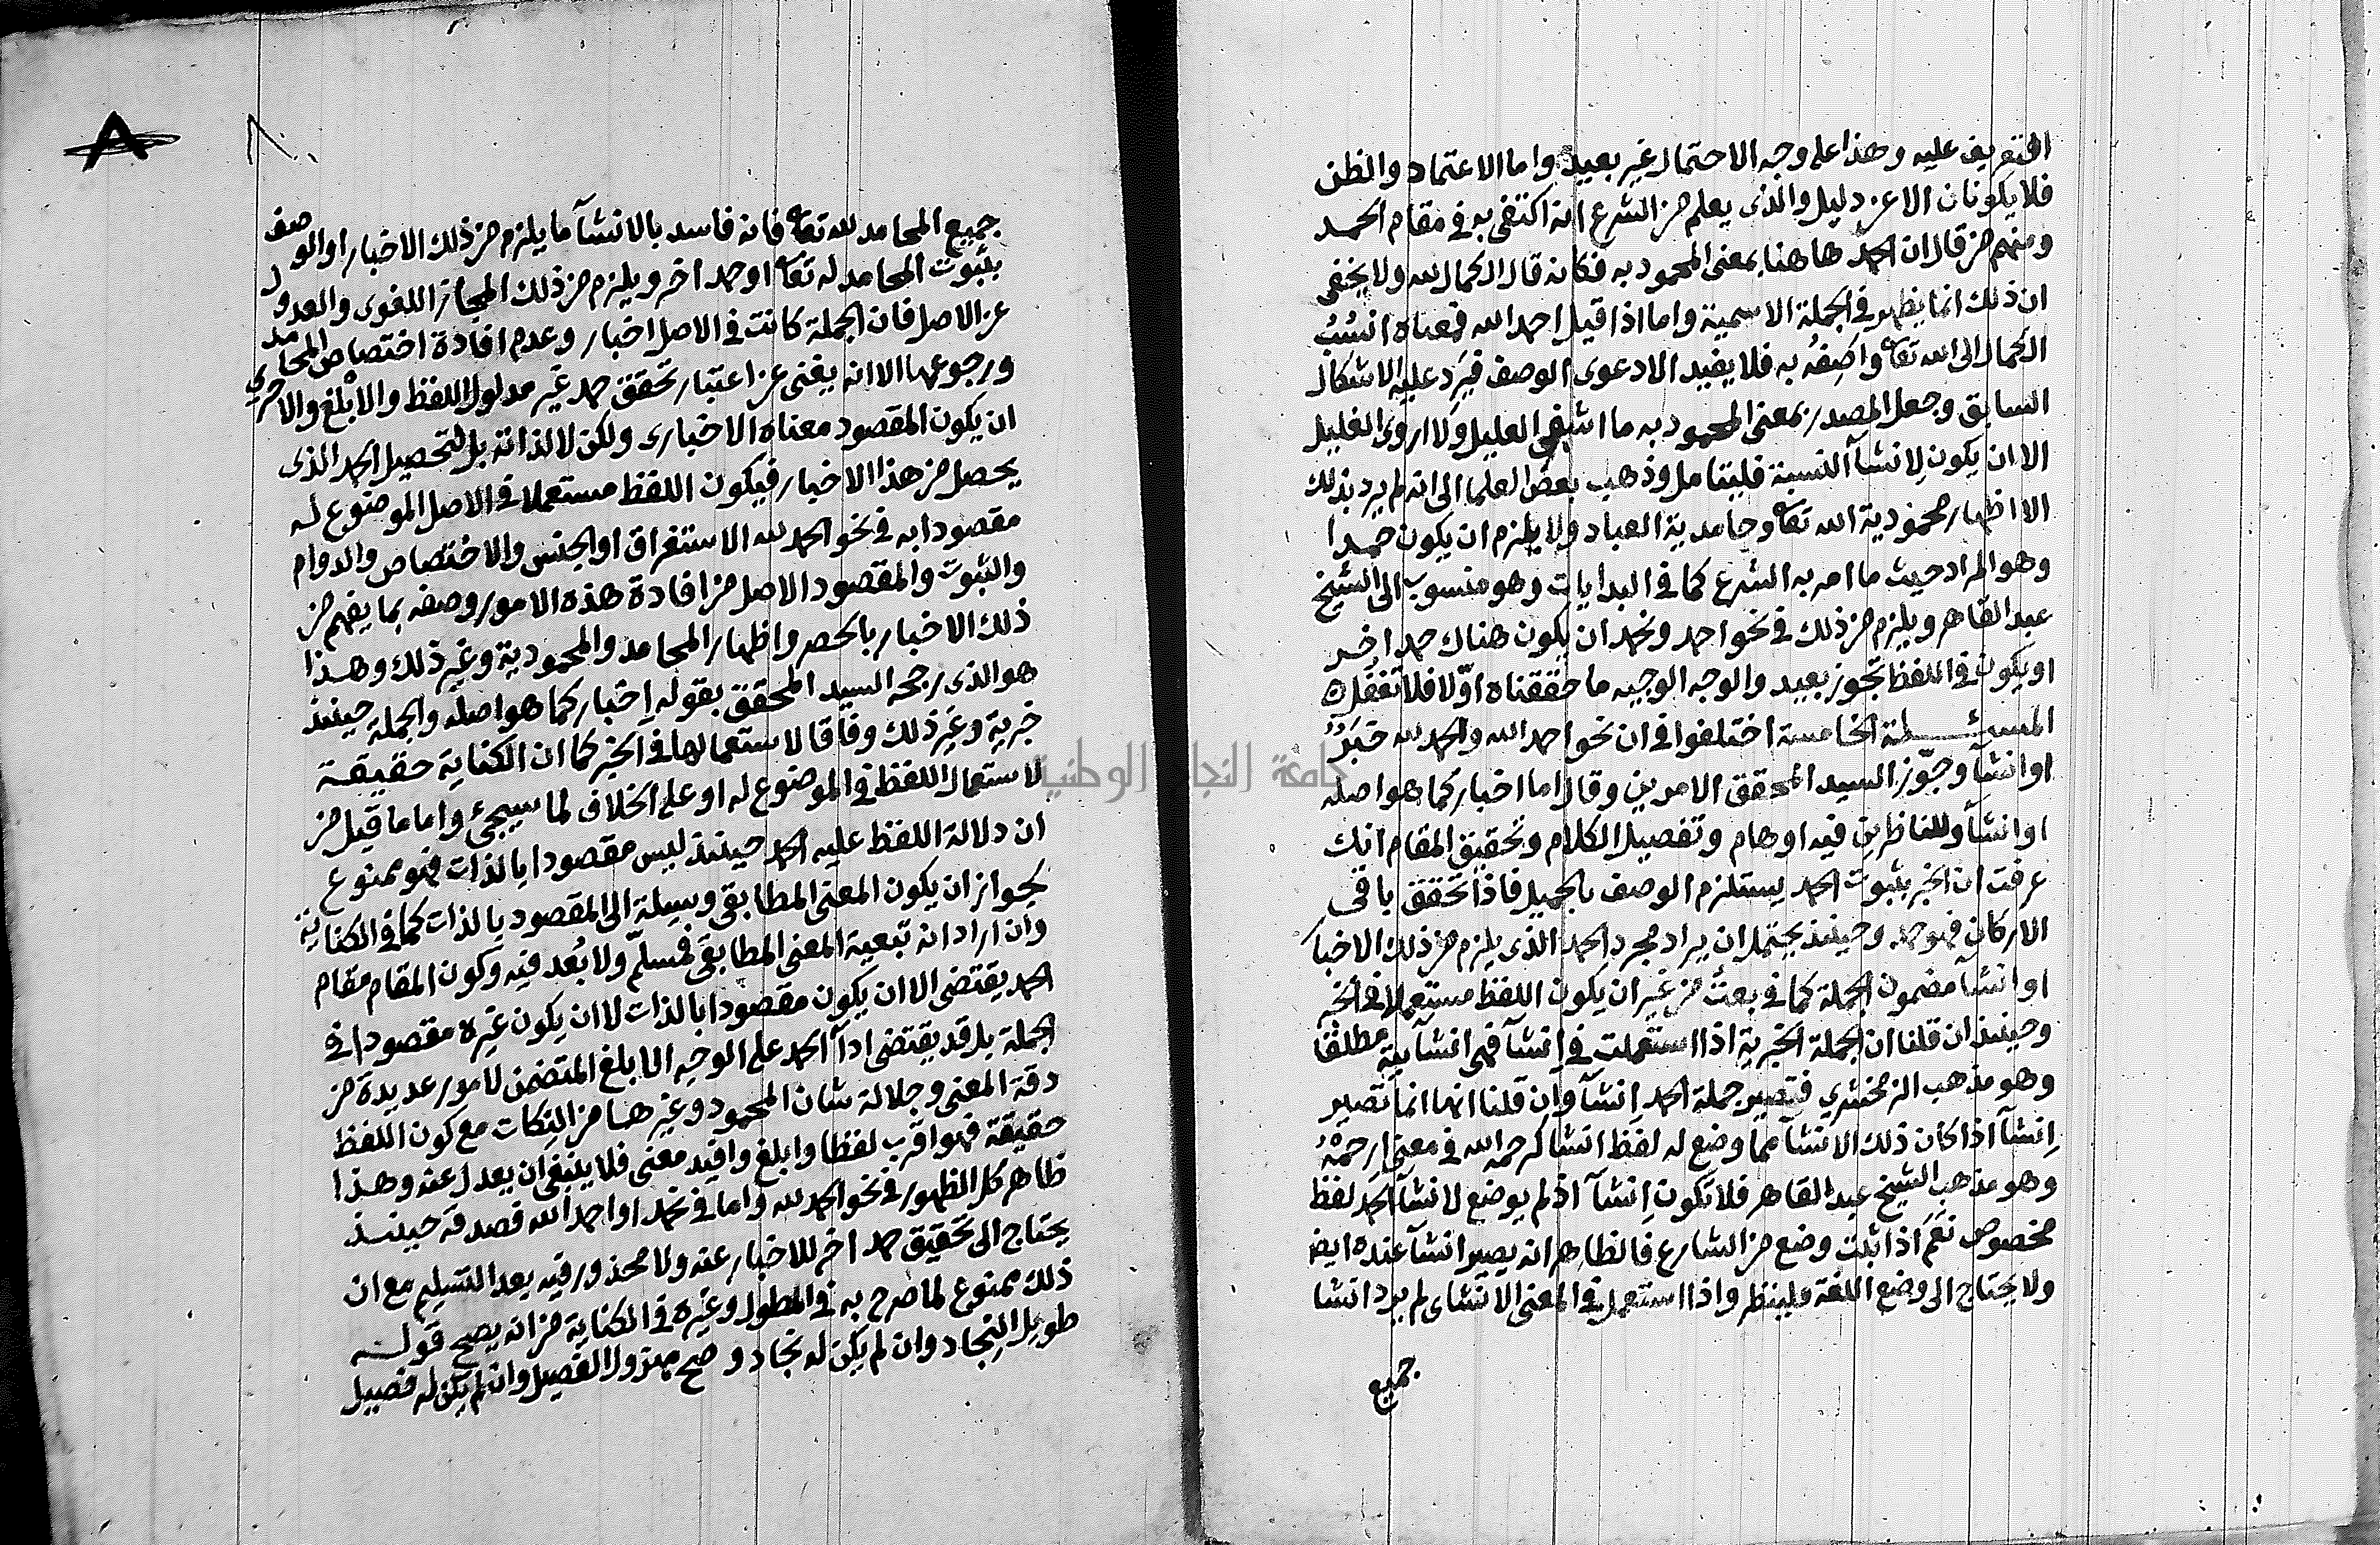 التعريف عليه وهذا على وجه الاحتمال غير بعيد واما الاعتماد والظن
فلا يكونان الا عن دليل والذى يعلم من الشرع انه اكتفى به فى مقام الحمد
ومنهم من قال ان الحمد هاهنا بمعنى المحمود به فكانه قال الكمال لله ولا يخفى
ان ذلك انما يظهر فى الجملة الاسمية واما اذا قيل احمد الله فمعناه انسُبُ
الكمال الى الله تعا واصِفُه به فلا يفيد الا دعوى الوصف فيَرِد عليه الاشكال
السابق وجعل المصدر بمعنى المحمود به ما اشفى العليل ولا اروى الغليل
الا ان يكون لانشآ النسبة فليتامل وذهب بعض العلما الى انه لم يرد بذلك
الا اظهار محمودية الله تعا وحامدية العباد ولا يلزم ان يكون حمدا
وهو المراد حيث ما امر به الشرع كما فى البدايات وهو منسوب الى الشيخ
عبد القاهر ويلزم من ذلك فى نحو احمد ونحمد ان يكون هناك حمد اخر
او يكون فى اللفظ تجوز بعيد والوجه الوجيه ما حققناه اوّلا فلا تغفُل
المسئلة الخامسة اختلفوا فى ان نحو احمد الله والحمد لله خبَرٌ
او انشآ وجوّز السيد المحقق الامرين وقال اما اخبار كما هو اصله
او انشآ وللناظرين فيه اوهام وتفصيل الكلام وتحقيق المقام انك
عرفت ان الخبر بثبوت الحمد يستلزم الوصف بالجميل فاذا تحقق باقى
الاركان فهو حمد وحينئذ يحتمل ان يراد مجرد الحمد الذى يلزم من ذلك الاخبار
او انشآ مضمون الجملة كما فى بعتُ من غير ان يكون اللفظ مستعملا فى الخبر
وحينئذ ان قلنا ان الجملة الخبرية اذا استعملت فى انشآ فهى انشآيية مطلقا
وهو مذهب الزمخشري فتصير جملة الحمد انشآ وان قلنا انها انما تصير
انشآ اذا كان ذلك الانشآ مما وضع له لفظ انشا كرحمه الله فى معنى ارحمْهُ
وهو مذهب الشيخ عبد القاهر فلا تكون انشآ اذ لم يوضع لانشآ الحمد لفظ
مخصوص نعَم اذا ثبت وضع من الشارع فالظاهر انه يصير انشآ عنده ايض
ولا يحتاج الى وضع اللغة فلينظر واذا استعمل فى المعنى الانشاى لم يرد انشا
جميع
جميع المحامد لله تعا فانه فاسد بالانشآ ما يلزم من ذلك الاخبار او الوصف
بثبوت المحامد له تعا او حمد اخر ويلزم من ذلك المجاز اللغوى والعدول
عن الاصل فان الجملة كانت فى الاصل اخبار وعدم افادة اختصاص المحامد
ورجوعها الا انه يغنى عن اعتبار تحقق حمد غير مدلول اللفظ والابْلغ والاحرى
ان يكون المقصود معناه الاخبارى ولكن لا لذاته بل لتحصيل الحمد الذى
يحصل من هذا الاخبار فيكون اللفظ مستعملا فى الاصل الموضوع له
مقصودا به فى نحو الحمد لله الاستغراق او الجنس والاختصاص والدوام
والثبوت والمقصود الاصل من افادة هذه الامور وصفه بما يفهم من
ذلك الاخبار بالحصر واظهار المحامد والمحمودية وغير ذلك وهذا
هو الذى رجحه السيد المحقق بقوله اخبار كما هو اصله والجملة حينئذ
خبرية وغير ذلك وفاقا لاستعمالها فى الخبر كما ان الكناية حقيقة
لاستعمال اللفظ فى الموضوع له او على الخلاف لما سيجئ واما ما قيل من
ان دلالة اللفظ عليه الحمد حينئذ ليس مقصودا بالذات فهو ممنوع
لجواز ان يكون المعنى المطابقى وسيلة الى المقصود بالذات كما فى الكناية
وان اراد انه تبعية المعنى المطابقى فمسلّم ولا بُعد فيه وكون المقام مقام
الحمد يقتضى الا ان يكون مقصودا بالذات لا ان يكون غيره مقصودا فى
الجملة بل قد يقتضى ادآ الحمد على الوجه الابلغ المتضمن لامور عديدة من
دقة المعنى وجلالة شان المحمود وغيرها من النكات مع كون اللفظ
حقيقة فهو اقرب لفظا وابلغ وافيد معنى فلا ينبغى ان يعدل عنه وهذا
ظاهر كل الظهور فى نحو الحمد لله واما فى نحمد او احمد الله فصدقه حينئذ
يحتاج الى تحقيق حمد اخر للاخبار عنه ولا محذور فيه بعد التسليم مع ان
ذلك ممنوع لما صرح به فى المطول وغيره فى الكناية من انه يصح قوله
طويل النجاد وان لم يكن له نجاد وصح مهزول الفصيل وان لم يكن له فصيل